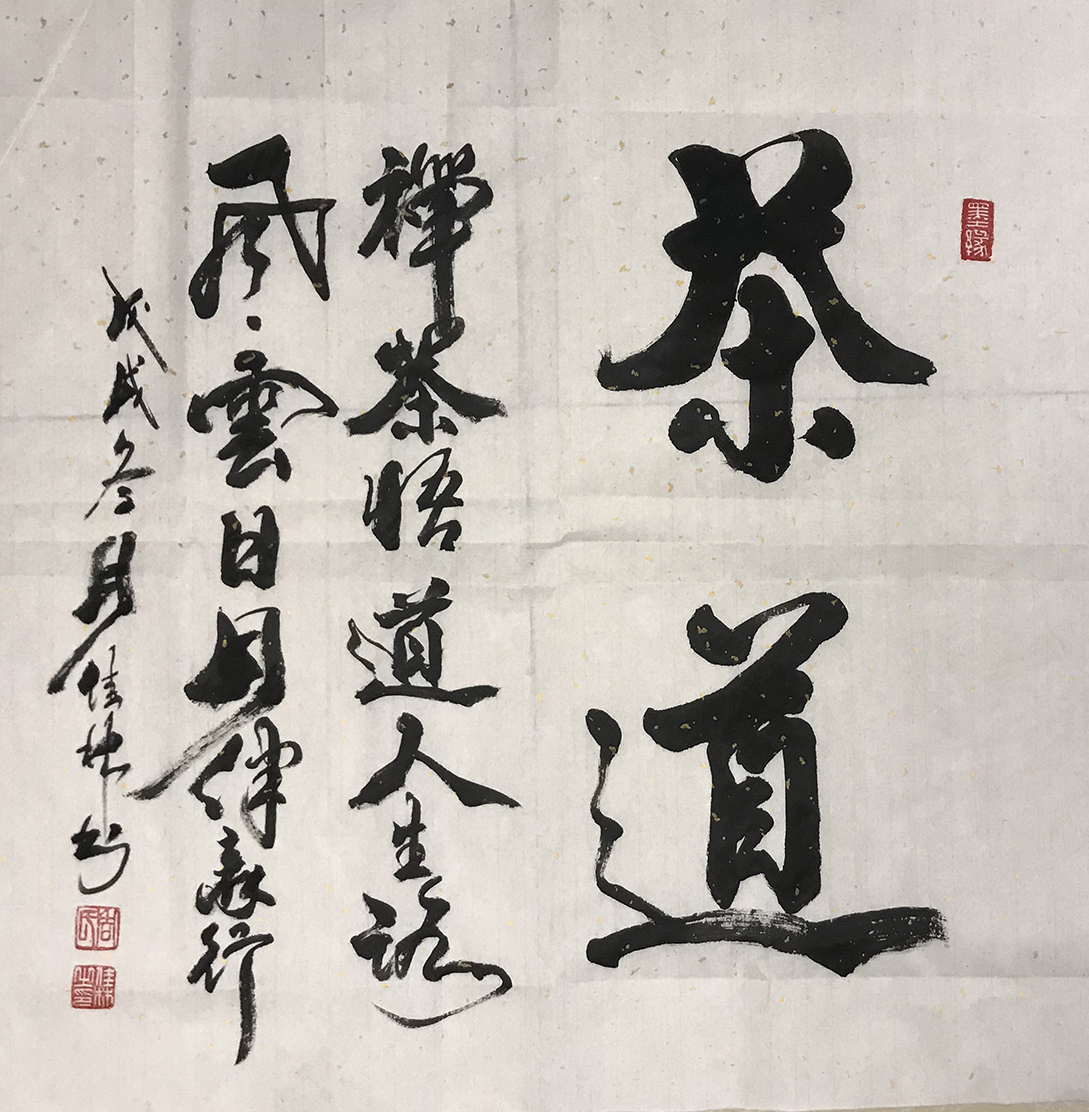 墨緣
茶道
禪茶悟道人生路
風雲日月伴行
戊戌冬月佳林书
周氏